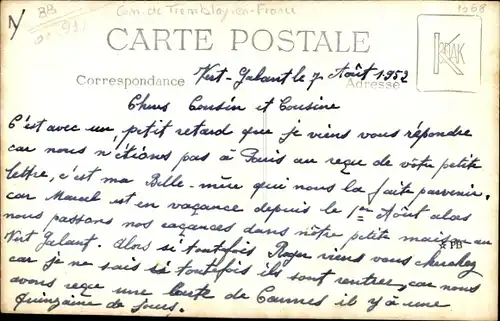 BB
Com. de Tremblay-en-France
1968
CARTE POSTALE
KODAK
Correspondance
Adresse
Vert-Galant le 7 Août 1952
Chers Cousin et Cousine
C'est avec un petit retard que je viens vous répondre
car nous n'étions pas à Paris au reçue de vôtre petite
lettre, c'est ma Belle-mère qui nous la faite parvenir.
car Marcel est en vacance depuis le 1er Août alors
nous passons nos vaçances dans nôtre petite maison au
Vert Galant. Alors si toutefois Roger viens vous cherchez
car je ne sais si toutefois ils sont rentrer, car nous
avons reçue une carte de Cannes il y à une
Quinzaine de jours.